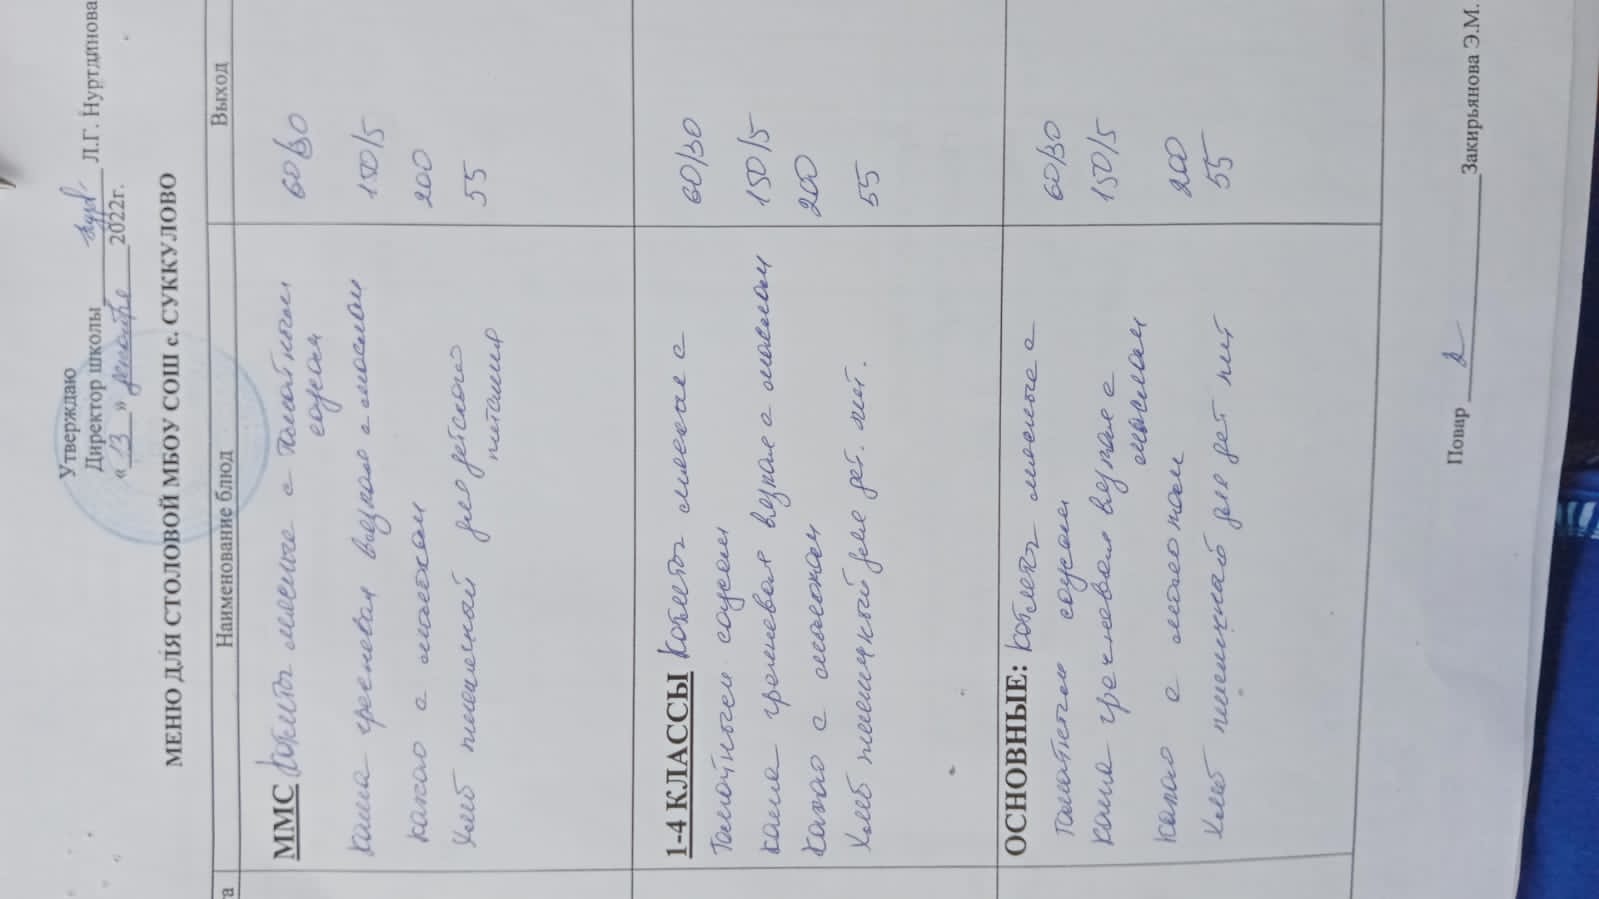 Утверждаю
Директор школы Л.Г. Нуртдинова
« 13 » декабря 2022г.
МЕНЮ ДЛЯ СТОЛОВОЙ МБОУ СОШ с. СУККУЛОВО
та Наименование блюд Выход
ММС Котлеты мясные с томатным 60/30
соусом
каша гречневая вязкая с маслом 150/5
какао с молоком 200
Хлеб пшеничный для детского 55
питания
1-4 КЛАССЫ Котлеты мясные с 60/30
томатным соусом
каша гречневая вязкая с маслом 150/5
Какао с молоком 200
Хлеб пшеничный для дет. пит. 55
ОСНОВНЫЕ: Котлеты мясные с 60/30
томатным соусом
каша гречневая вязкая с 150/5
маслом
какао с молоком 200
Хлеб пшеничный для дет пит 55
Повар Закирьянова Э.М.